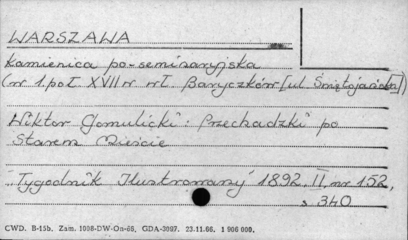 WARSZAWA
Kamienica po-seminaryjska
(w 1.poł XVII w wł. Baryczków [ul. Świętojańska])
Wiktor Gomulicki: Przechadzki po
Starem Mieście
"Tygodnik Ilustrowany" 1892, II, nr 152,
s 340
CWD. B-15b. Zam. 1098-DW-On-66, GDA-3097. 23.11.66. 1 906 000.